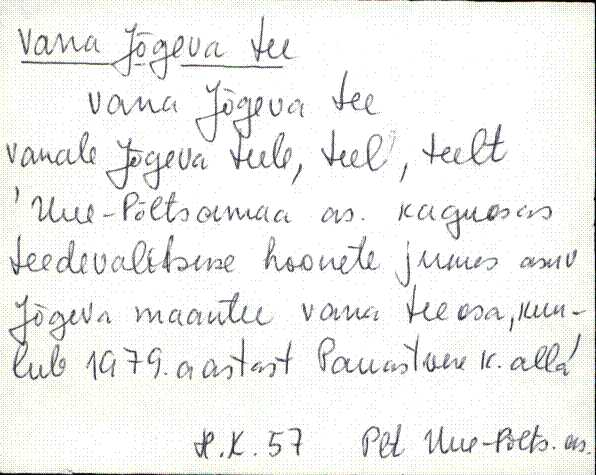 vana Jõgeva tee
vana Jõgeva tee
vanale Jõgeva teele, teel', teelt
'Uue-Põltsamaa as. kaguosas
teedevalitsuse hoonete juures asuv
Jõgeva maantee vana tee osa, kuu-
lub 1979. aastast Pauastvere k. alla'
H.K. 57 Plt Uue-Põlts. as.